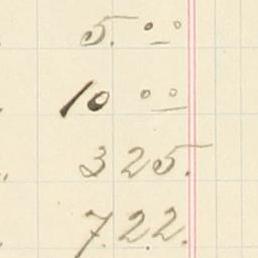 5. 00
10 00
3 25.
7.22.